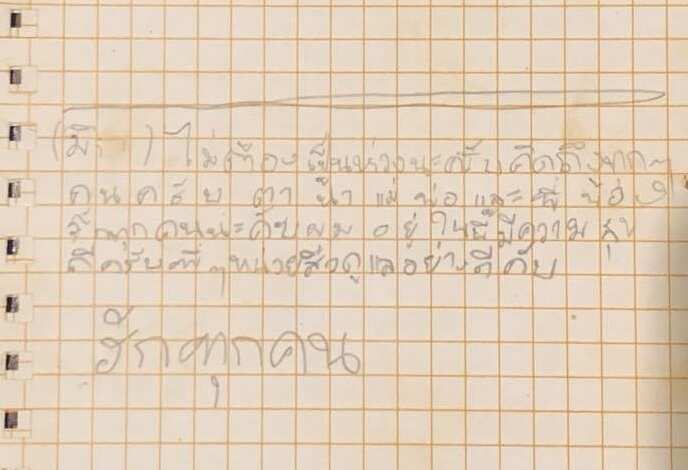 (มิ ) ไม่ต้องเป็นห่วงนะครับคิดถึงทุกๆ
คนครับ ตา น้า แม่ พ่อ และพี่ น้อง
รักทุกคนนะคับผม อยู่ ในนี้มีความ สุข
ดีครับพี่ๆหน่วยซีลดูแลอย่างดีคับ
รักทุกคน